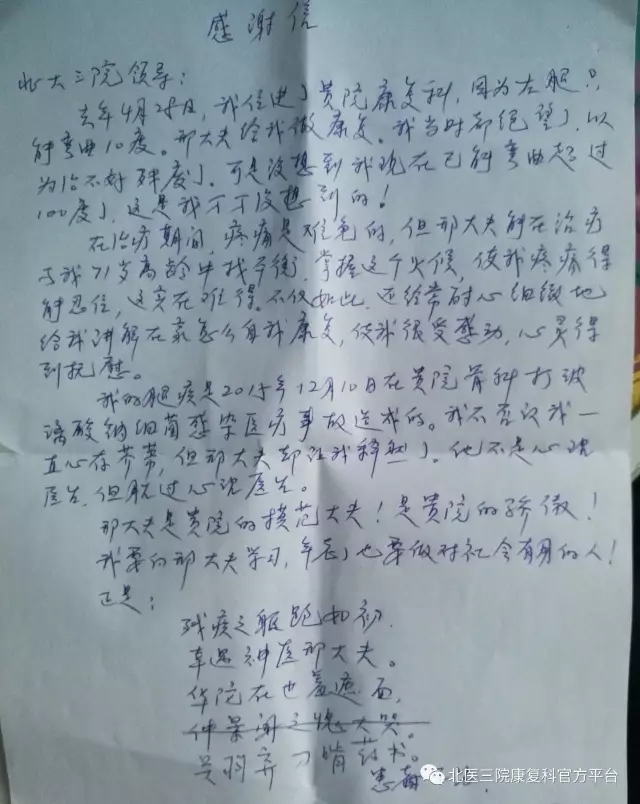 感谢信
北大三院领导:
去年4月28日,我住进了贵院康复科,因为左腿只
能弯曲10度。邢大夫给我做康复。我当时都绝望了,以
为治不好残废了。可是没想到我现在已能弯曲超过
100度了,这是我万万没想到的!
在治疗期间,疼痛是难免的,但邢大夫能在治疗
与我71岁高龄中找平衡,掌握这个火候,使我疼痛得
能忍住,这实在难得。不仅如此,还经常耐心细微地
给我讲解在家怎么自我康复,使我很受感动,心灵得
到抚慰。
我的腿疾是2015年12月10日在贵院骨科打玻
璃酸钠细菌感染医疗事故造成的。我不否认我一
直心存芥蒂,但邢大夫却让我释然了。他不是心理
医生,但胜过心理医生。
邢大夫是贵院的模范大夫!是贵院的骄傲!
我要向邢大夫学习,年老了也要做对社会有用的人!
正是:
残疾之躯跑如初,
幸遇神医邢大夫。
华陀在也羞遮面,
仲景闻之愧大哭。
关羽弃刀啃药书。
患者
北医三院康复科官方平台